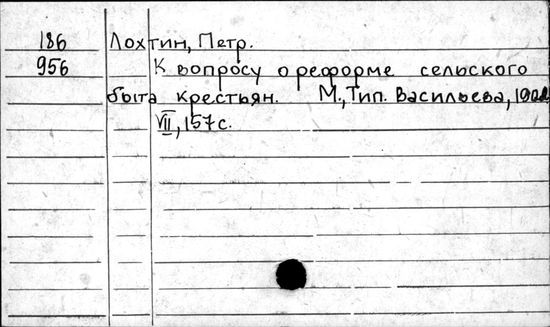 186 Лохтин, Петр.
956 К вопросу о реформе сельского
быта крестьян. М., Тип. Васильева, 1902
VII, 157 с.